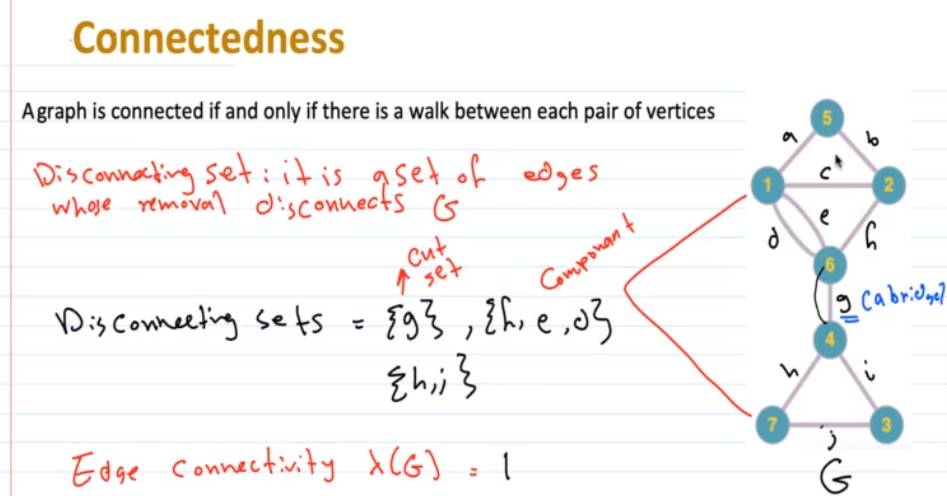 Connectedness
A graph is connected if and only if there is a walk between each pair of vertices
Disconnecting set : it is a set of edges
whose removal disconnects G
cut
set
Componant
Disconnecting sets = {g} , {h, e, d}
{h, j}
Edge Connectivity λ(G) = 1
5
a b
c
1 2
e
d h
6
g (a bridge)
4
h i
7 3
j
G